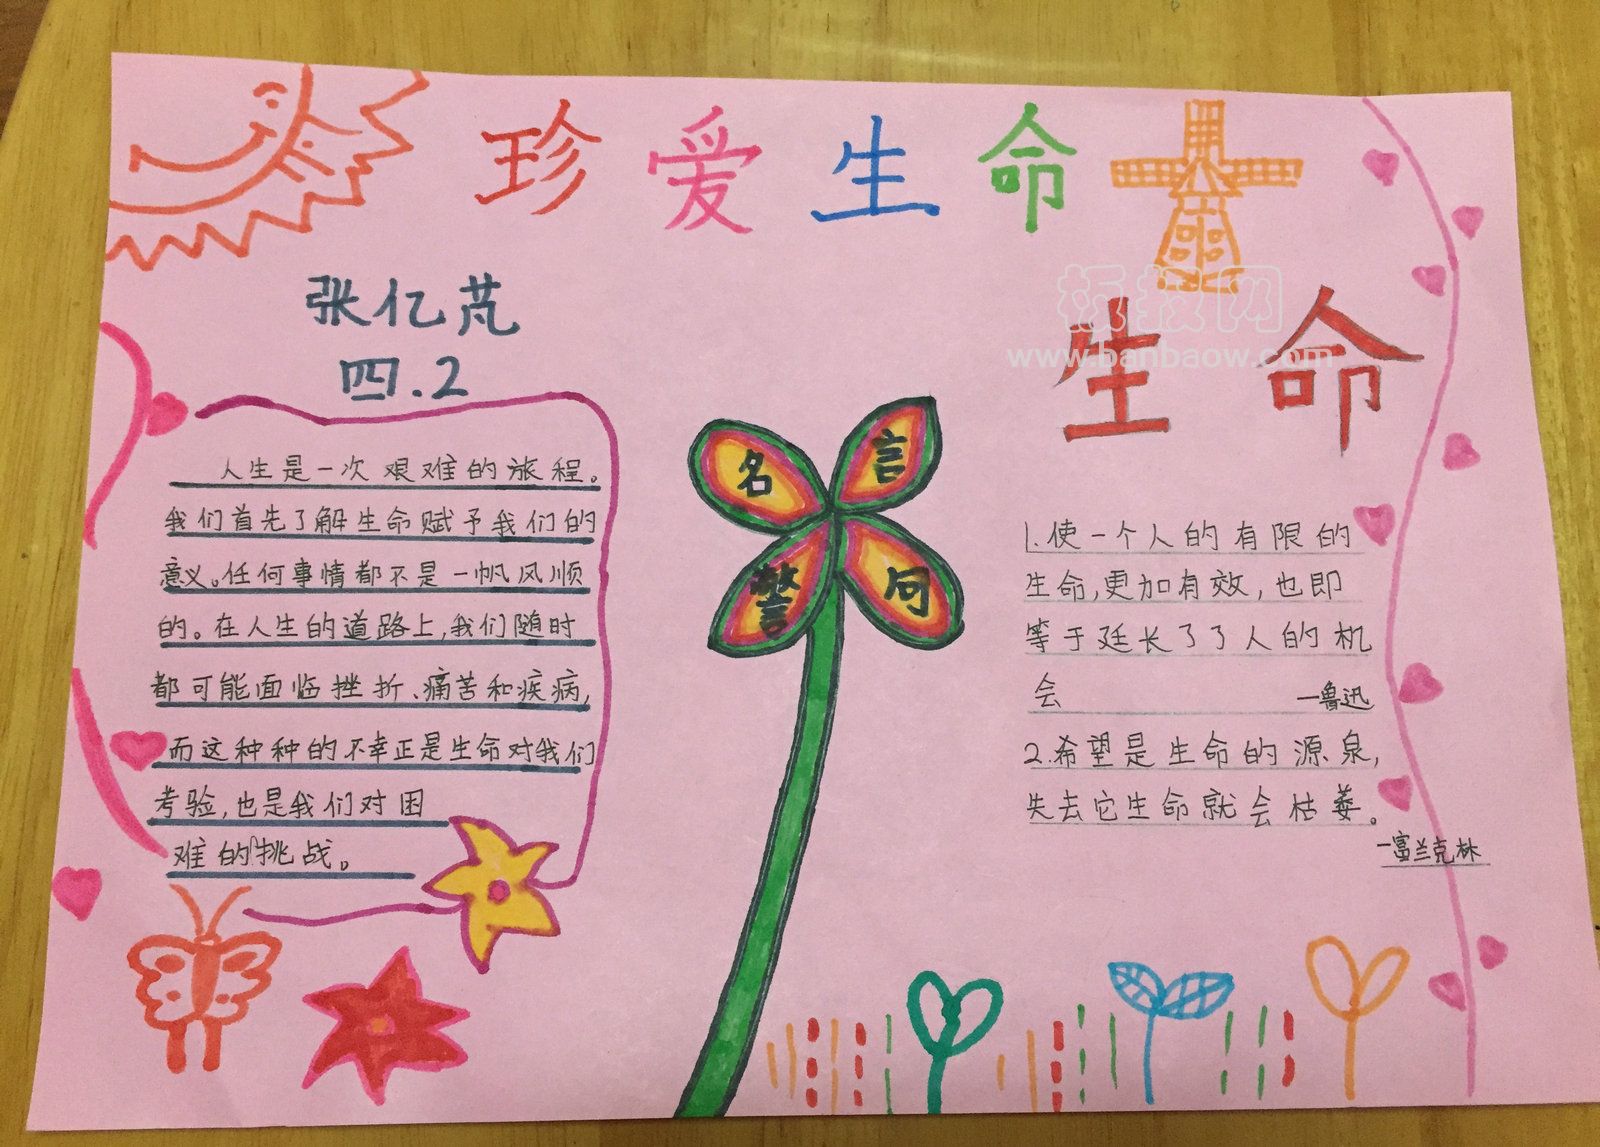 珍爱生命
张亿芃
四.2
人生是一次艰难的旅程。
我们首先了解生命赋予我们的
意义。任何事情都不是一帆风顺
的。在人生的道路上,我们随时
都可能面临挫折、痛苦和疾病,
而这种种的不幸正是生命对我们
考验,也是我们对困
难的挑战。
名言
警句
生命
www.banbaow.com
1.使一个人的有限的
生命,更加有效,也即
等于延长了了人的机
会 —鲁迅
2.希望是生命的源泉,
失去它生命就会枯萎。
—富兰克林